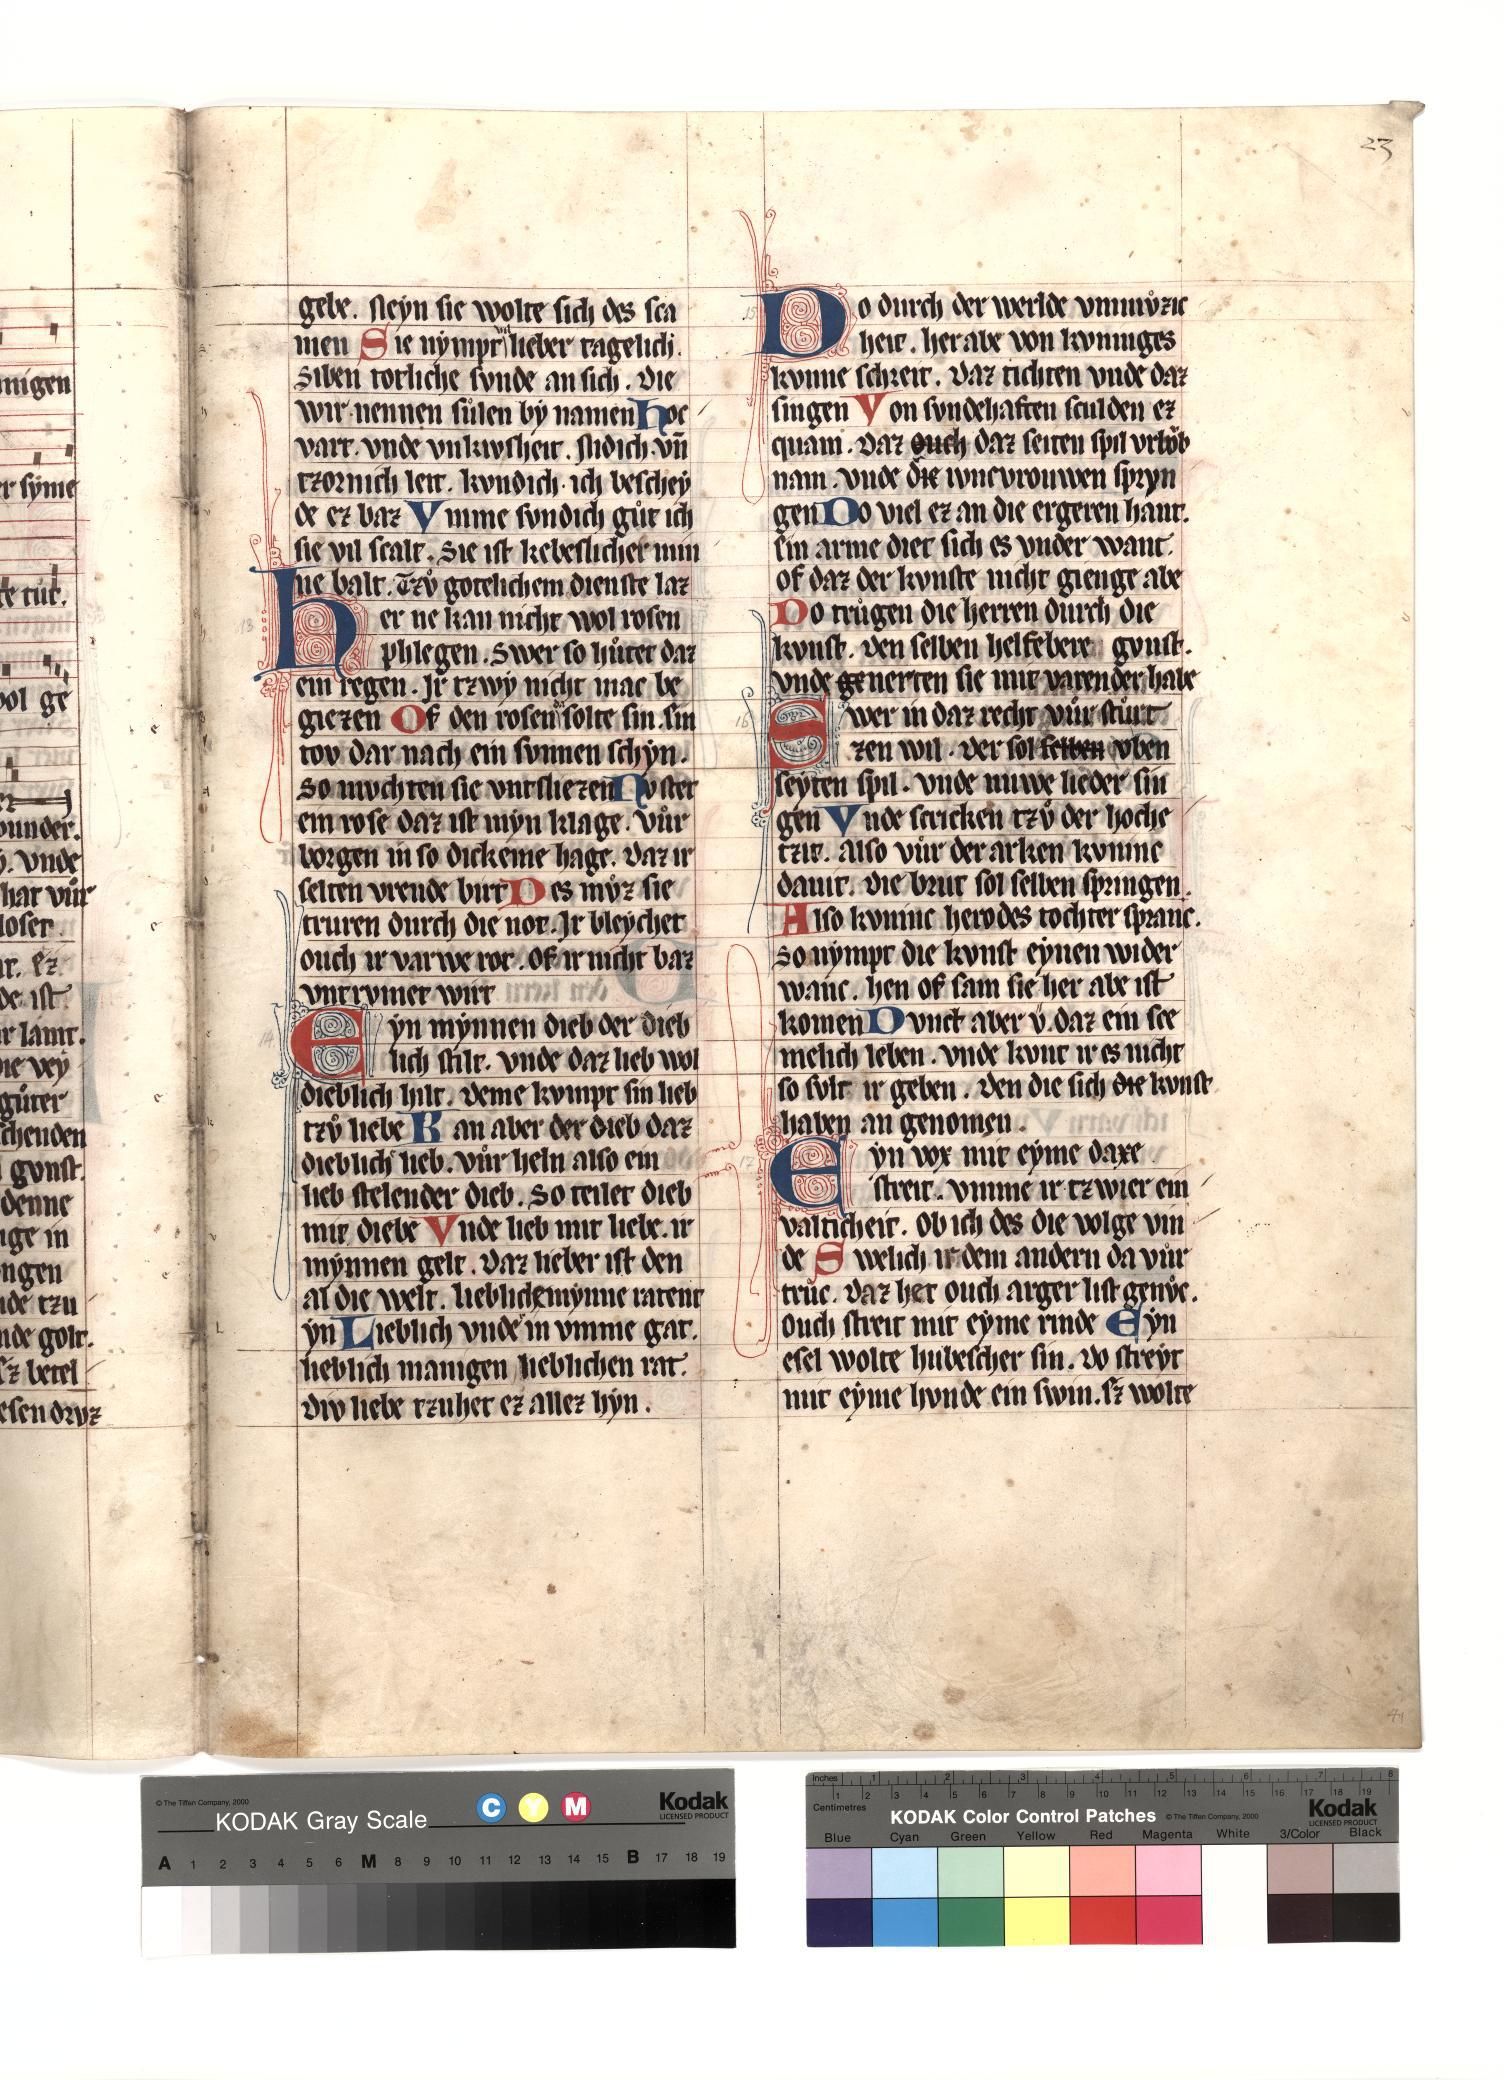 23
gebe. Neyn sie wolte sich des sca
men Sie nympt lieber tagelich.
Siben totliche svnde an sich. Die
wir nennen sůlen by namen hoe
vart. vnde vnkivsheit. Nidich. vn̄
tzornich leit. kvndich. ich beschey
de ez baz Vmme svndich gůt ich
sie vil scalt. Sie ist kebeslicher min
ne balt. Tzv̊ gotelichem dienste laz
her ne kan nicht wol rosen
phlegen. Swer so hůtet daz
ein regen. Jr tzwy nicht mac be
giezen Of den rosen solte sin. sin
tov dar nach ein svnnen schyn.
So mvchten sie vntsliezen Nv stet
ein rose daz ist myn klage. vůr
borgen in so dickeme hage. Daz ir
selten vrende birt Des mvz sie
truren durch die not. Jr bleychet
ouch ir varwe rot. Of ir nicht baz
vntrvmet wirt
Eyn mynnen dieb der dieb
lich stilt. vnde daz lieb wol
dieblich hilt. deme kvmpt sin lieb
tzv̊ liebe Kan aber der dieb daz
dieblich lieb. vůr heln also ein
lieb stelender dieb. So teilet dieb
mit diebe Vnde lieb mit liebe. ir
mynnen gelt. Daz lieber ist den
al die welt. lieblich mynne ratent
yn Lieblich vnde in vmme gat.
lieblich manigen lieblichen rat.
Div liebe tzuhet ez allez hyn.
15
Do durch der werlde vnmůzic
heit. her abe von kvninges
kvnne schreit. Daz tichten vnde daz
singen Von svndehaften sculden ez
quam. Daz ouch daz seiten spil vrlŏb
nam. Vnde die ivncvrouwen spryn
gen Do viel ez an die ergeren hant.
Ein arme diet sich es vnder want.
of daz der kvnste nicht gienge abe
Do trůgen die herren durch die
kvnst. den selben helfebere gvnst.
Vnde generten sie mit varender habe
16
Swer in daz recht vůr stůrt
zen wil. der sol selben vben
seyten spil. Vnde nuwe lieder sin
gen Vnde scricken tzv̊ der hoche
tzit. Also vůr der arken kvninc
dauit. Die brut sol selben springen.
Also kvninc herodes tochter spranc.
So nympt die kvnst eynen wider
wanc. hen of sam sie her abe ist
komen Dvnct aber v̊. daz ein sce
melich leben. vnde kvnt ir es nicht
so svlt ir geben. Den die sich die kvnst
haben an genomen.
17
Eyn vox mit eyme daxe
streit. vmme ir tzwier ein
valticheit. Ob ich des die volge vin
de Swelich ir dem andern da vůr
trůc. Daz het ouch arger list genůc.
Ouch streit mit eyme rinde Eyn
esel wolte hubescher sin. Do streyt
mit eyme hvnde ein swin. Iz wolte
KODAK Gray Scale
© The Tiffen Company, 2000
C Y M
Kodak
LICENSED PRODUCT
A 1 2 3 4 5 6 M 8 9 10 11 12 13 14 15 B 17 18 19
Inches 1 2 3 4 5 6 7 8
Centimetres 1 2 3 4 5 6 7 8 9 10 11 12 13 14 15 16 17 18 19
KODAK Color Control Patches
© The Tiffen Company, 2000
Kodak
LICENSED PRODUCT
Blue Cyan Green Yellow Red Magenta White 3/Color Black